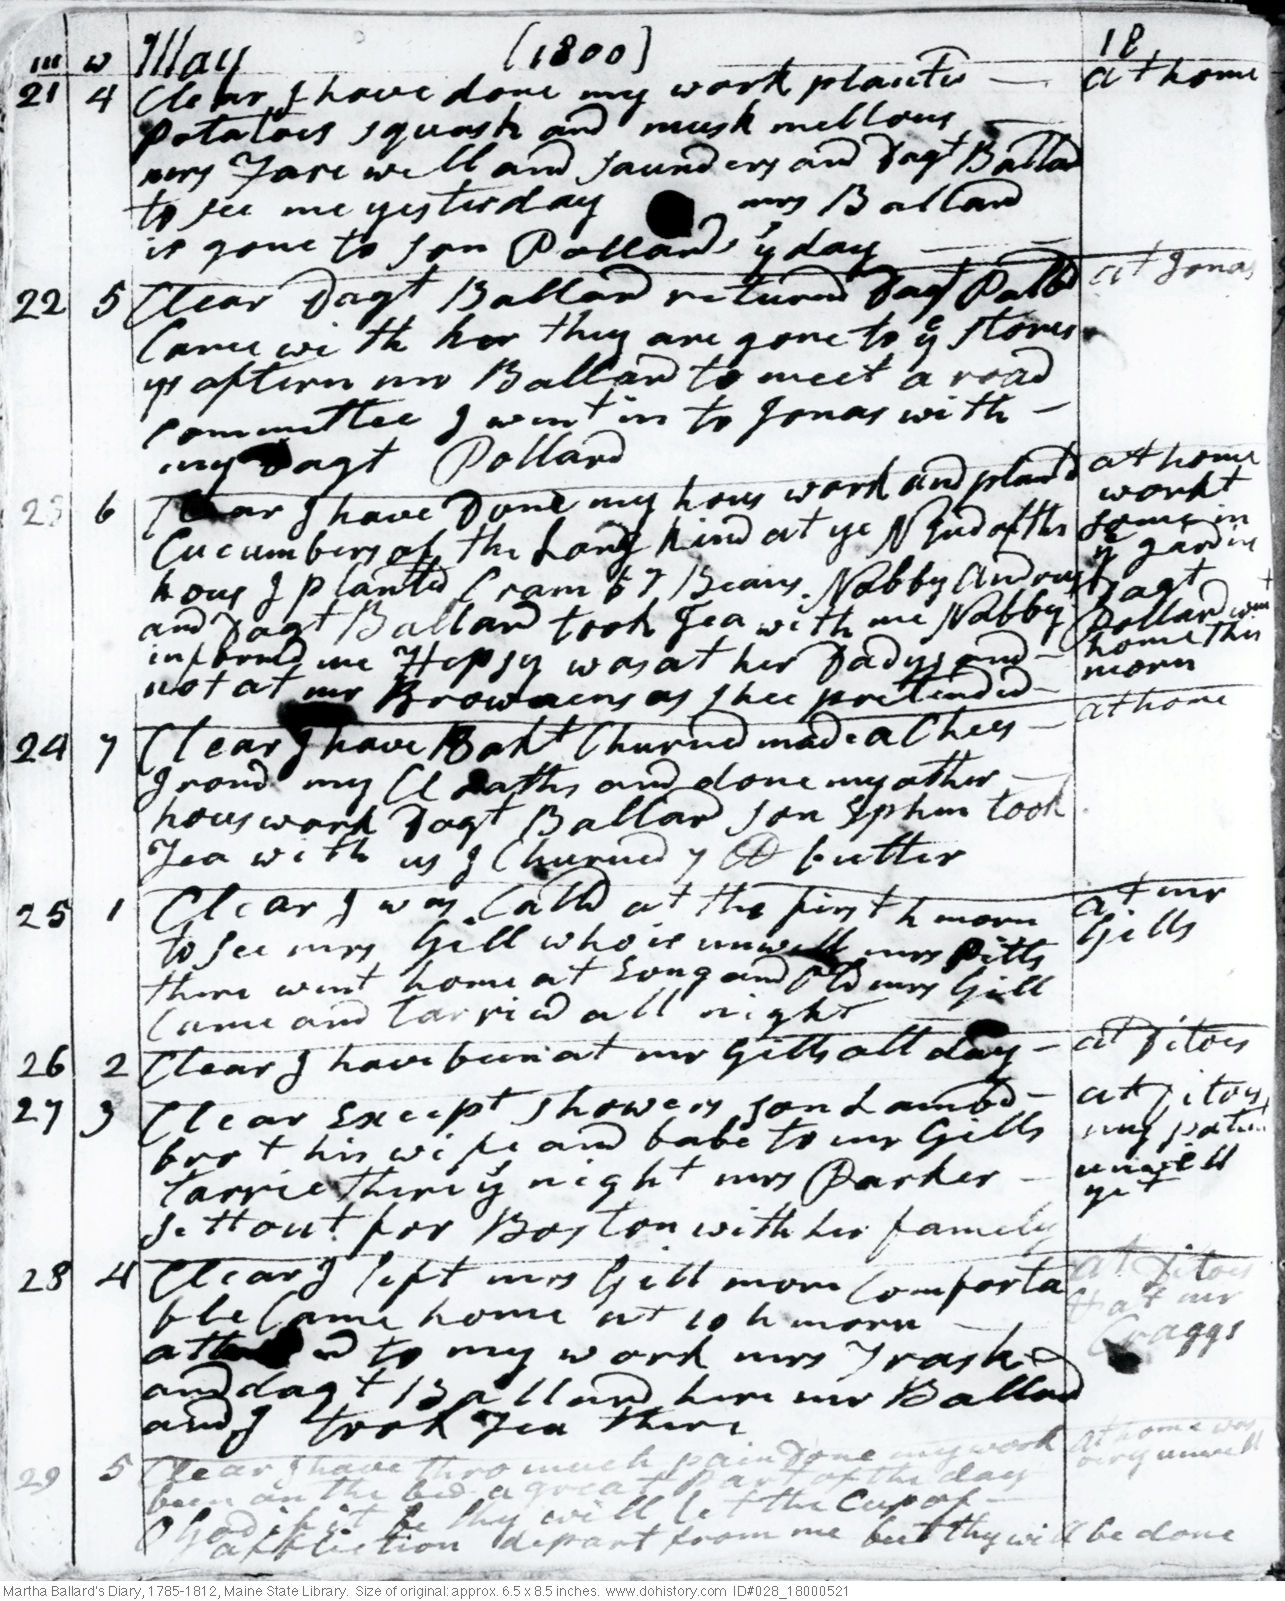 m w May [1800] 18
21 4 Clear, I have done my work planted — at home
potatoes squash and musk mellons —
mrs Farewell and Saunders and Dagt Ballad
to see me yesterday mrs Ballard
is gone to son Pollards ys day —
22 5 Clear Dagt Ballard returnd Dagt Pallad at Jonas
Came with her they are gone to ye stores
ys aftern mr Ballard to meet a road
committee I went in to Jonas with —
my Dagt Pollard
23 6 Clear I have Done my hous work and plantd at home
Cucumbers of the Long kind at ye N End of the workt some in
hous I planted Cram by Beans. Nabby Andrus ye garden Dagt
and Dagt Ballard took Tea with me Nabby Pollard went
informd me Hepsy was at her Dadys and — home this
not at mr Browns as shee pretended — morn
24 7 Clear I have Bakt Churned made a Chees — at home
Irond my Cloaths and done my other —
hous work Dagt Ballard son Ephm took
Tea with us I Churned 7 lb butter
25 1 Clear I was Calld at the first h morn at mr
to see mrs Gill who is unwell mrs Pitts Gills
there went home at Evng and old mrs Gill
Came and tarried all night
26 2 Clear I have been at mr Gills all day — at Ditoes
27 3 Clear Except showers son Lambd — at Ditoes
brot his wife and babe to mr Gills my patient
tarrie there ys night mrs Parker — unwell
sett out for Boston with her famely yet
28 4 Clear I left mrs Gill more Comforta at Ditoes
ble Came home at 10 h morn — & at mr
attend to my work mrs Trask Craggs
and dagt Ballard here mr Ballard
and I took Tea there
29 5 Clear I have thro much pain Done my work at home was
been on the bed a great part of the day very unwell
O God if it be Thy will let the Cup of —
affliction depart from me but thy will be done
Martha Ballard's Diary, 1785-1812, Maine State Library. Size of original: approx. 6.5 x 8.5 inches. www.dohistory.com ID#028_18000521